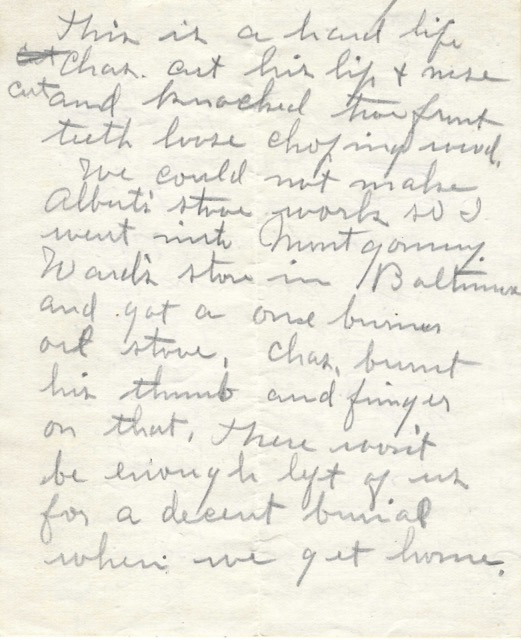 This is a hard life
cut Chas. cut his lip & nose
cut and knocked two front
teeth loose choping wood.
We could not make
Albert's stove work so I
went into Montgomery
Ward's store in Baltimore
and got a one burner
oil stove, Chas. burnt
his thumb and finger
on that, there won't
be enough left of us
for a decent burial
when we get home.